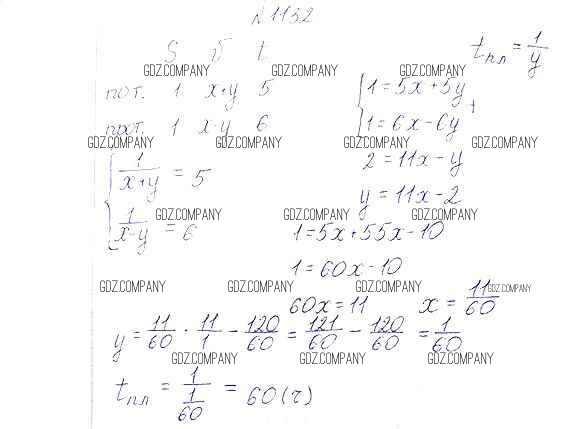 N 1132
S v t
t пл = 1/y
GDZ.COMPANY GDZ.COMPANY GDZ.COMPANY
пот. 1 x+y 5
{ 1=5x+5y
+
прот. 1 x-y 6
{ 1=6x-6y
GDZ.COMPANY GDZ.COMPANY GDZ.COMPANY GDZ.COMPANY
{ 1/(x+y) = 5
2=11x-y
y=11x-2
{ 1/(x-y) = 6
GDZ.COMPANY GDZ.COMPANY GDZ.COMPANY
1=5x+55x-10
1=60x-10
GDZ.COMPANY GDZ.COMPANY GDZ.COMPANY GDZ.COMPANY
60x=11 x= 11/60
y= 11/60 · 11/1 - 120/60 = 121/60 - 120/60 = 1/60
GDZ.COMPANY GDZ.COMPANY GDZ.COMPANY
t пл = 1/(1/60) = 60(ч)